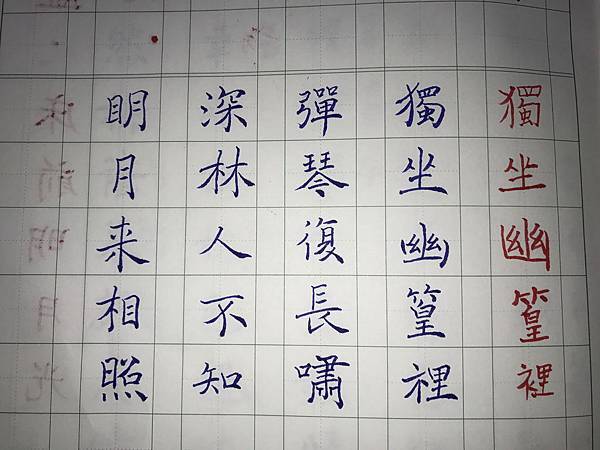 獨坐幽篁裡
獨坐幽篁裡
彈琴復長嘯
深林人不知
眀月来相照